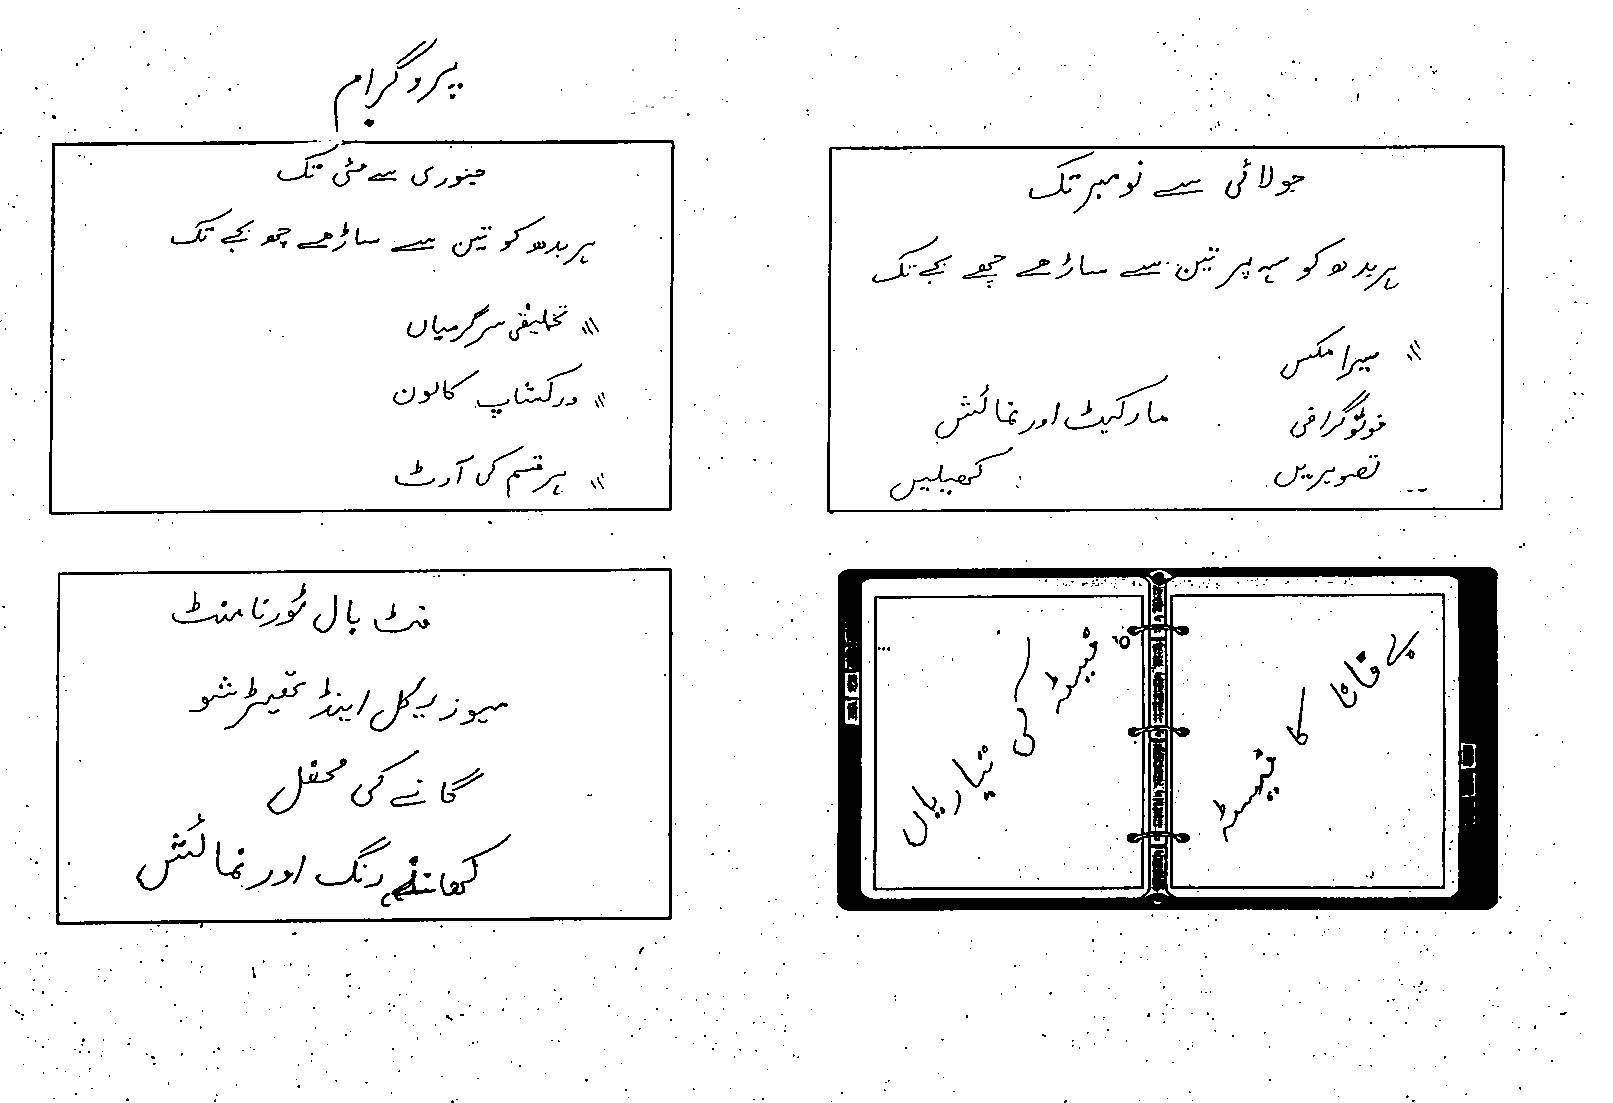 پروگرام
جنوری سے مئی تک
ہر بدھ کو تین سے ساڑھے چھ بجے تک
〃 تخلیقی سرگرمیاں
〃 ورکشاپ کالون
〃 ہر قسم کی آرٹ
جولائی سے نومبر تک
ہر بدھ کو سہ پہر تین سے ساڑھے چھے بجے تک
〃 سیرامکس
فوٹوگرافی مارکیٹ اور نمائش
تصویریں کھیلیں
فٹ بال ٹورنامنٹ
میوزیکل اینڈ تھیٹر شو
گانے کی محفل
کھانے رنگ اور نمائش
کا فیسٹہ
فیسٹہ کی تیاریاں